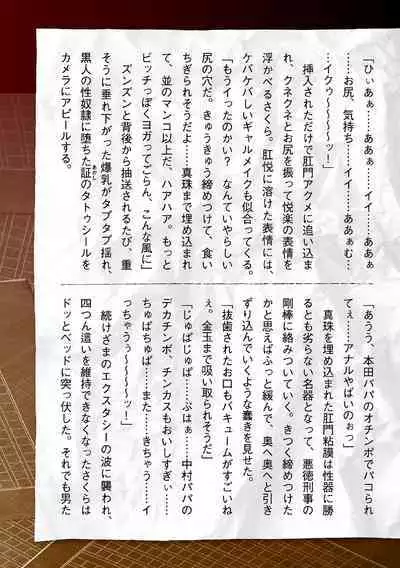 「ひぃあぁ……ああぁ　イイ……ああぁ
……お尻、気持ち……イイ……ああぁむ…
…イクゥ〜〜〜〜ッ！」
　挿入されただけで肛門アクメに追い込ま
れ、クネクネとお尻を振って悦楽の表情を
浮かべるさくら。肛悦に溶けた表情には、
ケバケバしいギャルメイクも似合ってくる。
「もうイったのかい？　なんていやらしい
尻の穴だ。きゅうきゅう締めつけて、食い
ちぎられそうだよ……真珠まで埋め込まれ
て、並のマンコ以上だ、ハアハア。もっと
ビッチっぽくヨガってごらん、こんな風に」
　ズンズンと背後から抽送されるたび、重
そうに垂れ下がった爆乳がタプタプ揺れ、
黒人の性奴隷に堕ちた証のタトゥシールを
カメラにアピールする。
「あうう、本田パパのオチンポでバコられ
てぇ……アナルやばいのぉっ」
　真珠を埋め込まれた肛門粘膜は性器に勝
るとも劣らない名器となって、悪徳刑事の
剛棒に絡みついていく。きつく締めつけた
かと思えばふっと緩んで、奥へ奥へと引き
ずり込んでいくような蠢きを見せた。
「抜歯されたお口もバキュームがすごいね
ぇ。金玉まで吸い取られそうだ」
「じゅぱじゅぱ……ぷはぁ……中村パパの
デカチンポ、チンカスもおいしすぎぃ……
ちゅぱちゅぱ……また……きちゃう……イ
っちゃうぅ〜〜〜〜ッ！」
　続けざまのエクスタシーの波に襲われ、
四つん這いを維持できなくなったさくらは
ドッとベッドに突っ伏した。それでも男た